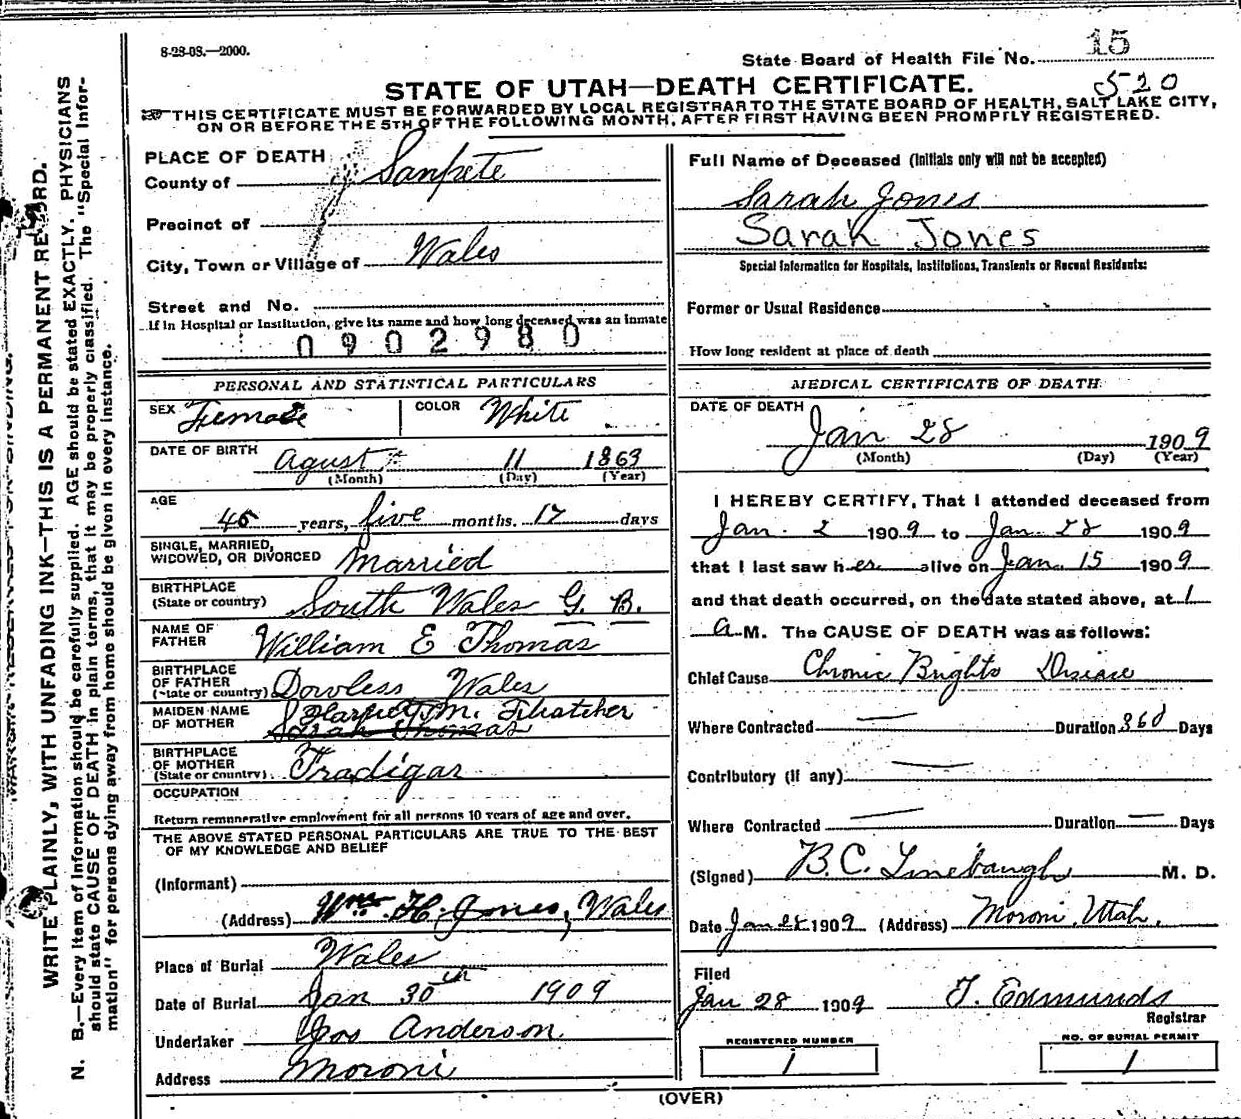 8-28-08.—2000.
State Board of Health File No. 15
520
STATE OF UTAH—DEATH CERTIFICATE.
THIS CERTIFICATE MUST BE FORWARDED BY LOCAL REGISTRAR TO THE STATE BOARD OF HEALTH, SALT LAKE CITY,
ON OR BEFORE THE 5TH OF THE FOLLOWING MONTH, AFTER FIRST HAVING BEEN PROMPTLY REGISTERED.
WRITE PLAINLY, WITH UNFADING INK—THIS IS A PERMANENT RECORD.
N. B.—Every item of information should be carefully supplied. AGE should be stated EXACTLY. PHYSICIANS
should state CAUSE OF DEATH in plain terms, that it may be properly classified. The "Special Infor-
mation" for persons dying away from home should be given in every instance.
PLACE OF DEATH
County of Sanpete
Precinct of
City, Town or Village of Wales
Street and No.
If in Hospital or Institution, give its name and how long deceased was an inmate
0902980
PERSONAL AND STATISTICAL PARTICULARS
SEX Female COLOR White
DATE OF BIRTH Agust 11 1863
(Month) (Day) (Year)
AGE
45 years, five months. 17 days
SINGLE, MARRIED,
WIDOWED, OR DIVORCED Married
BIRTHPLACE
(State or country) South Wales G. B.
NAME OF
FATHER William E Thomas
BIRTHPLACE
OF FATHER
(State or country) Dowless Wales
MAIDEN NAME
OF MOTHER Harriet M. Thatcher
Sarah Thomas
BIRTHPLACE
OF MOTHER
(State or country) Tradigar
OCCUPATION
Return remunerative employment for all persons 10 years of age and over.
THE ABOVE STATED PERSONAL PARTICULARS ARE TRUE TO THE BEST
OF MY KNOWLEDGE AND BELIEF
(Informant)
(Address) Wm. H. Jones, Wales
Place of Burial Wales
Date of Burial Jan 30th 1909
Undertaker Jos Anderson
Address Moroni
Full Name of Deceased (Initials only will not be accepted)
Sarah Jones
Sarah Jones
Special Information for Hospitals, Institutions, Transients or Recent Residents:
Former or Usual Residence
How long resident at place of death
MEDICAL CERTIFICATE OF DEATH
DATE OF DEATH
Jan 28 1909
(Month) (Day) (Year)
I HEREBY CERTIFY, That I attended deceased from
Jan. 2 1909 to Jan. 28 1909
that I last saw her alive on Jan. 15 1909
and that death occurred, on the date stated above, at 1
A M. The CAUSE OF DEATH was as follows:
Chief Cause Chronic Brights Disease
Where Contracted — Duration 360 Days
Contributory (if any) —
Where Contracted — Duration — Days
(Signed) B. C. Linebaugh M. D.
Date Jan 28 1909 (Address) Moroni, Utah.
Filed
Jan 28 1909 T. Edmunds
Registrar
REGISTERED NUMBER
1
NO. OF BURIAL PERMIT
1
(OVER)